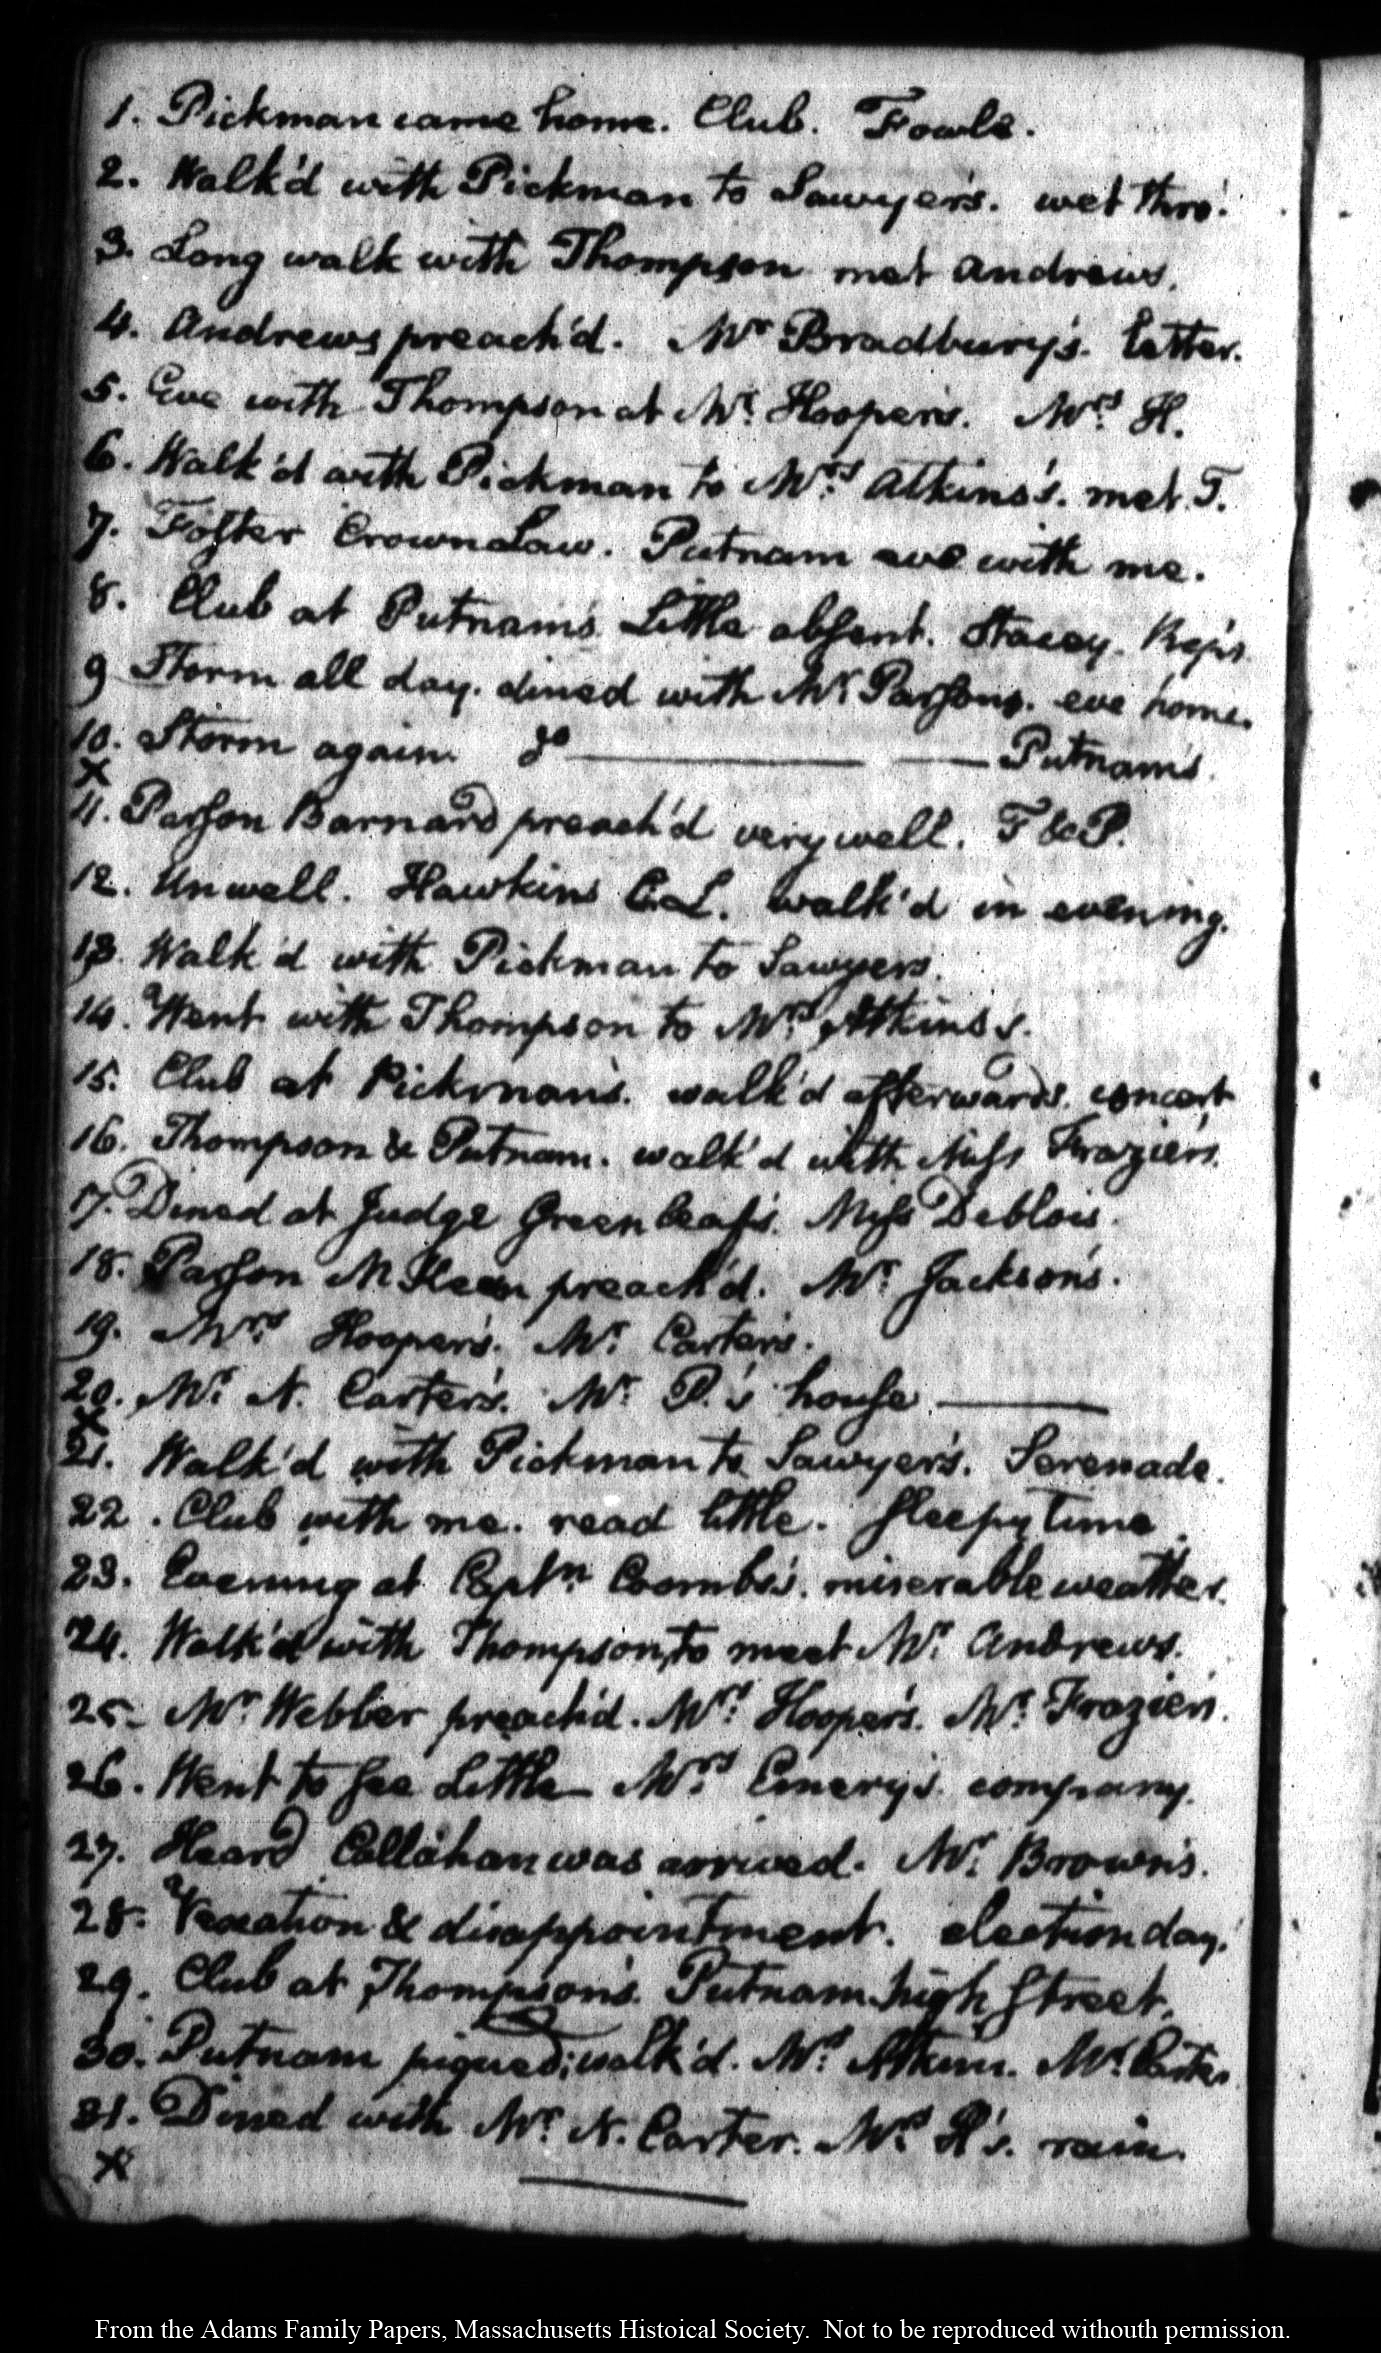 1. Pickman came home. Club. Fowle.
2. Walk'd with Pickman to Sawyer's. wet thro'.
3. Long walk with Thompson met Andrews.
4. Andrews preach'd. Mr Bradbury's. letter.
5. Eve with Thompson at Mr. Hooper's. Mrs H.
6. Walk'd with Pickman to Mrs. Atkins's. met T.
7. Foster Crown Law. Putnam eve with me.
8. Club at Putnam's. Little absent. Stacey.
9 Storm all day. dined with Mr Parsons. eve home.
10. Storm again. do ——— —— Putnam's.
x
11. Parson Barnard preach'd very well. T & P.
12. Unwell. Hawkins C.L. walk'd in evening.
13. Walk'd with Pickman to Sawyers.
14. Went with Thompson to Mrs. Atkins's.
15. Club at Pickman's. walk'd afterwards. concert
16. Thompson & Putnam. walk'd with Miss Frazier's.
17. Dined at Judge Greenleaf's. Miss Deblois.
18. Parson McKeen preach'd. Mr. Jackson's.
19. Mrs. Hooper's. Mr. Carter's.
20. Mr. N. Carter's. Mr P.'s house ———
x
21. Walk'd with Pickman to Sawyer's. Serenade.
22. Club with me. read little. sleepy time.
23. Evening at Captn. Coombs's. miserable weather.
24. Walk'd with Thompson, to meet Mr. Andrews.
25. Mr Webber preach'd. Mrs. Hooper's. Mr. Frazier's.
26. Went to see Little— Mrs. Emery's. company.
27. Heard Callahan was arrived. Mr. Brown's.
28. Vexation & disappointment. election day.
29. Club at Thompson's. Putnam. high Street.
30. Putnam piqued; walk'd. Mrs. Atkins. Mr. Carter.
31. Dined with Mr. N. Carter. Mrs. H's. rain.
x
From the Adams Family Papers, Massachusetts Histoical Society. Not to be reproduced withouth permission.